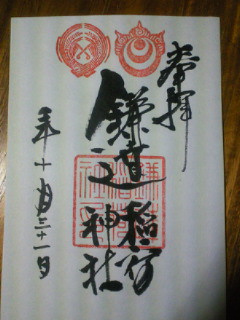 奉拝
鎌達稲荷
神社
年十月三十一日